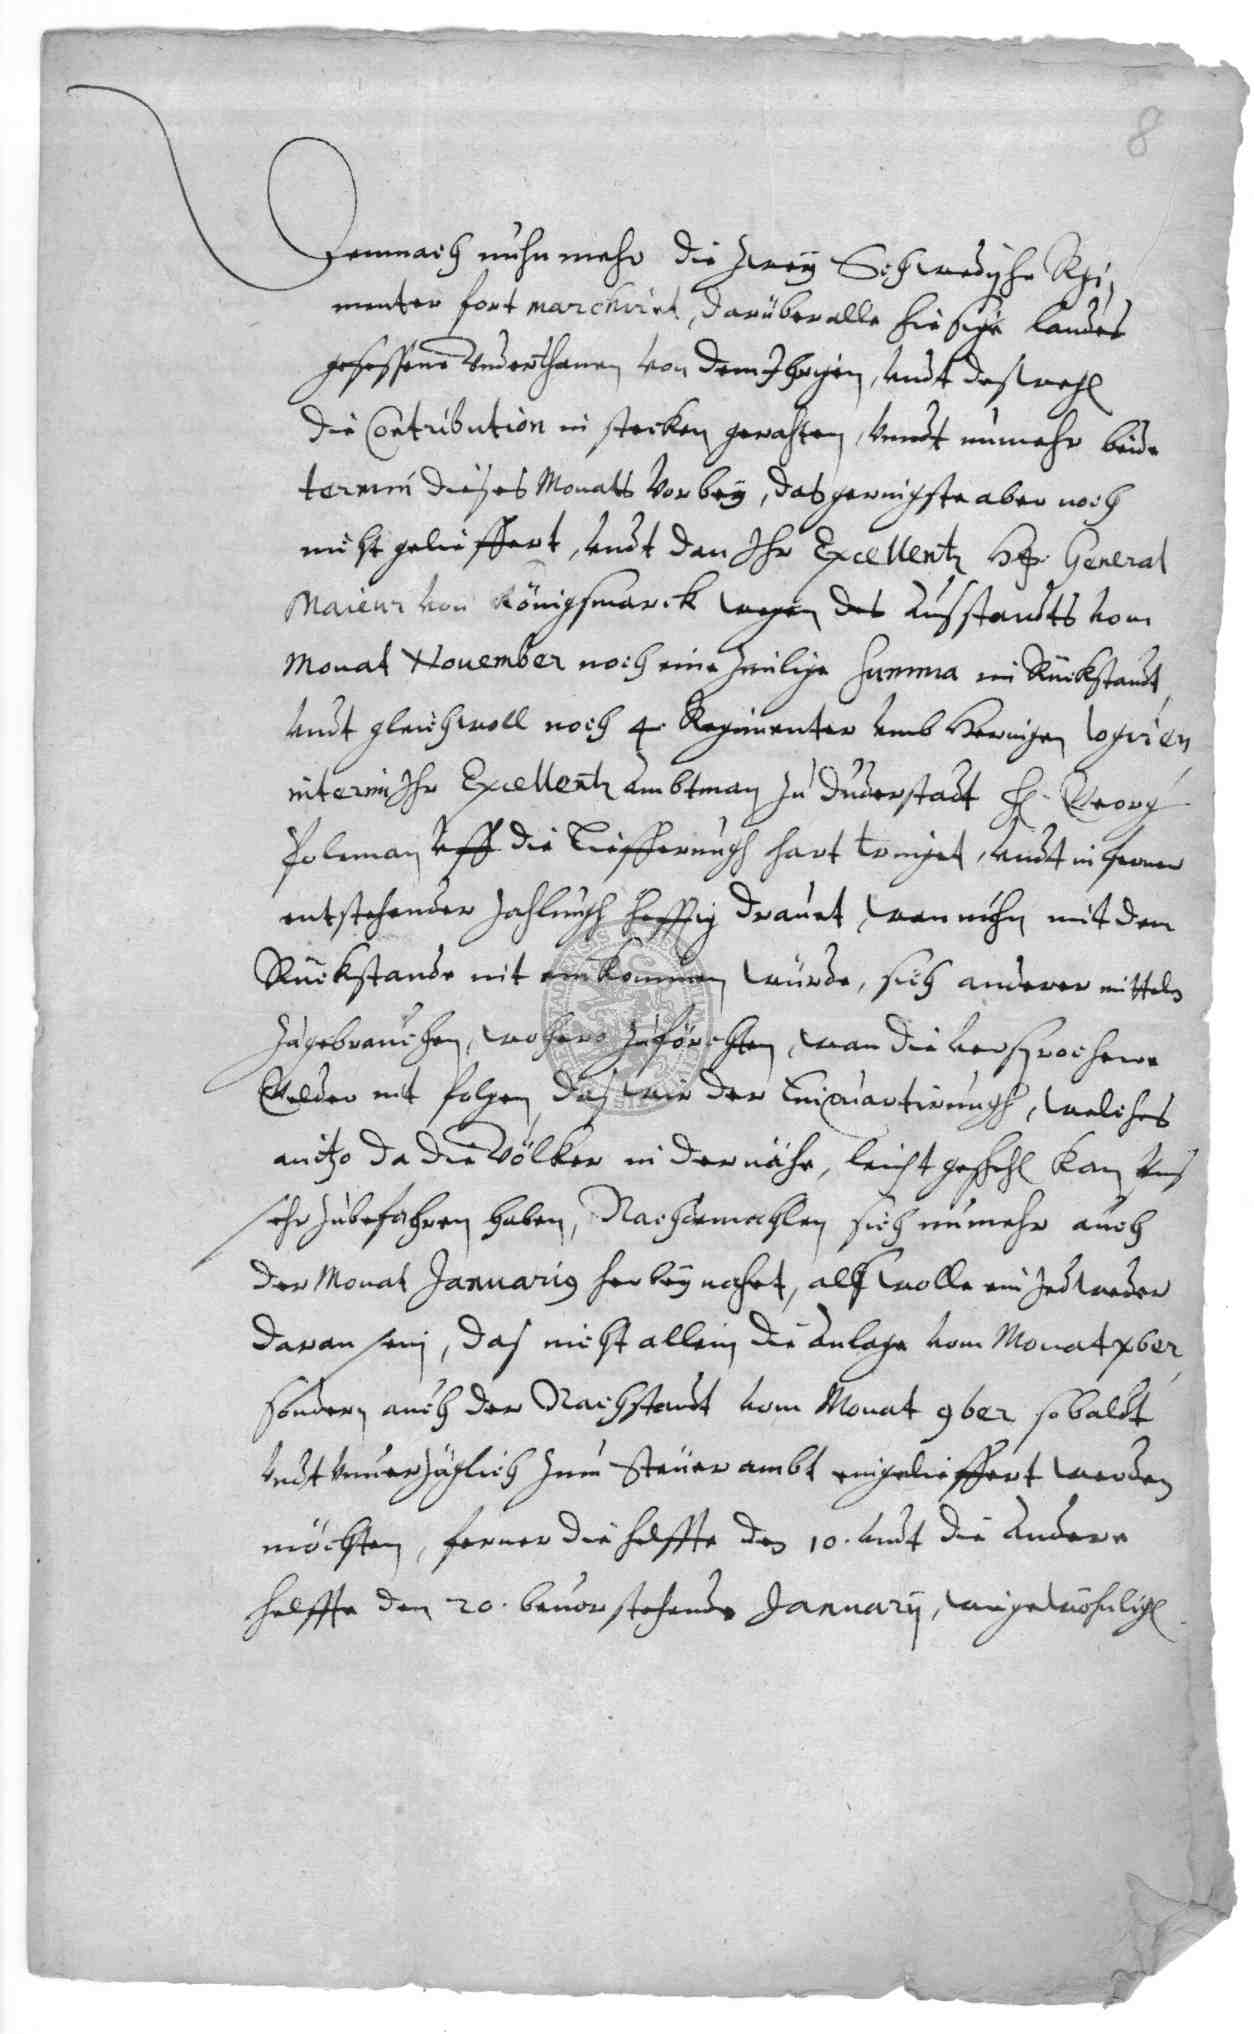 8
Demnach nuhn mehr die zweÿ Schwedische Regi,
menter fort marchirt, darüber alle hiesige landes
gesessene Vnderthanen von dem Ihrigen, vndt deswegh
die Contribution in stecken gerahten, vnndt nunmehr beide
termin dieses Monats vorbeÿ, das geringste aber noch
nicht gelieffert, vndt dan Ihr Excellentz H. General
Maieur von Königsmarck wegen des Ausstandts vom
Monat Nouember noch eine zimlige summa in Rückstandt,
vndt gleichwoll noch 4. Regimenter vmb Heringen logiren,
interim Ihr Excellentz Ambtman zu Duderstadt H. Georg
Poleman vff die Liefferungh hart tringet, vndt in ferner
entstehender zahlungh hefftig drauet, wan nuhn mit dem
Rückstande nit einkommen würde, sich anderer mitteln
zugebrauchen, wohero zuförchten, wan die versprochene
Gelder nit folgen, das wir der Einquartirungh, welches
anitzo da die Völker in der nähe, leicht geschehn kan, vns
sehr zubefahren haben, Nachdemahlen sich nunmehr auch
der Monat Januarius herbeÿ nahet, alß wolle ein Jedtweder
daran sein, das nicht allein die Anlage vom Monat xber,
sondern auch der Nachstandt vom Monat 9ber sobaldt
vndt vnuerzüglich zum Steüer ambt eingelieffert werden
möchten, ferner die helffte den 10. vndt die Andere
helffte den 20. beuorstehende Januarÿ, wie gewöhnligh